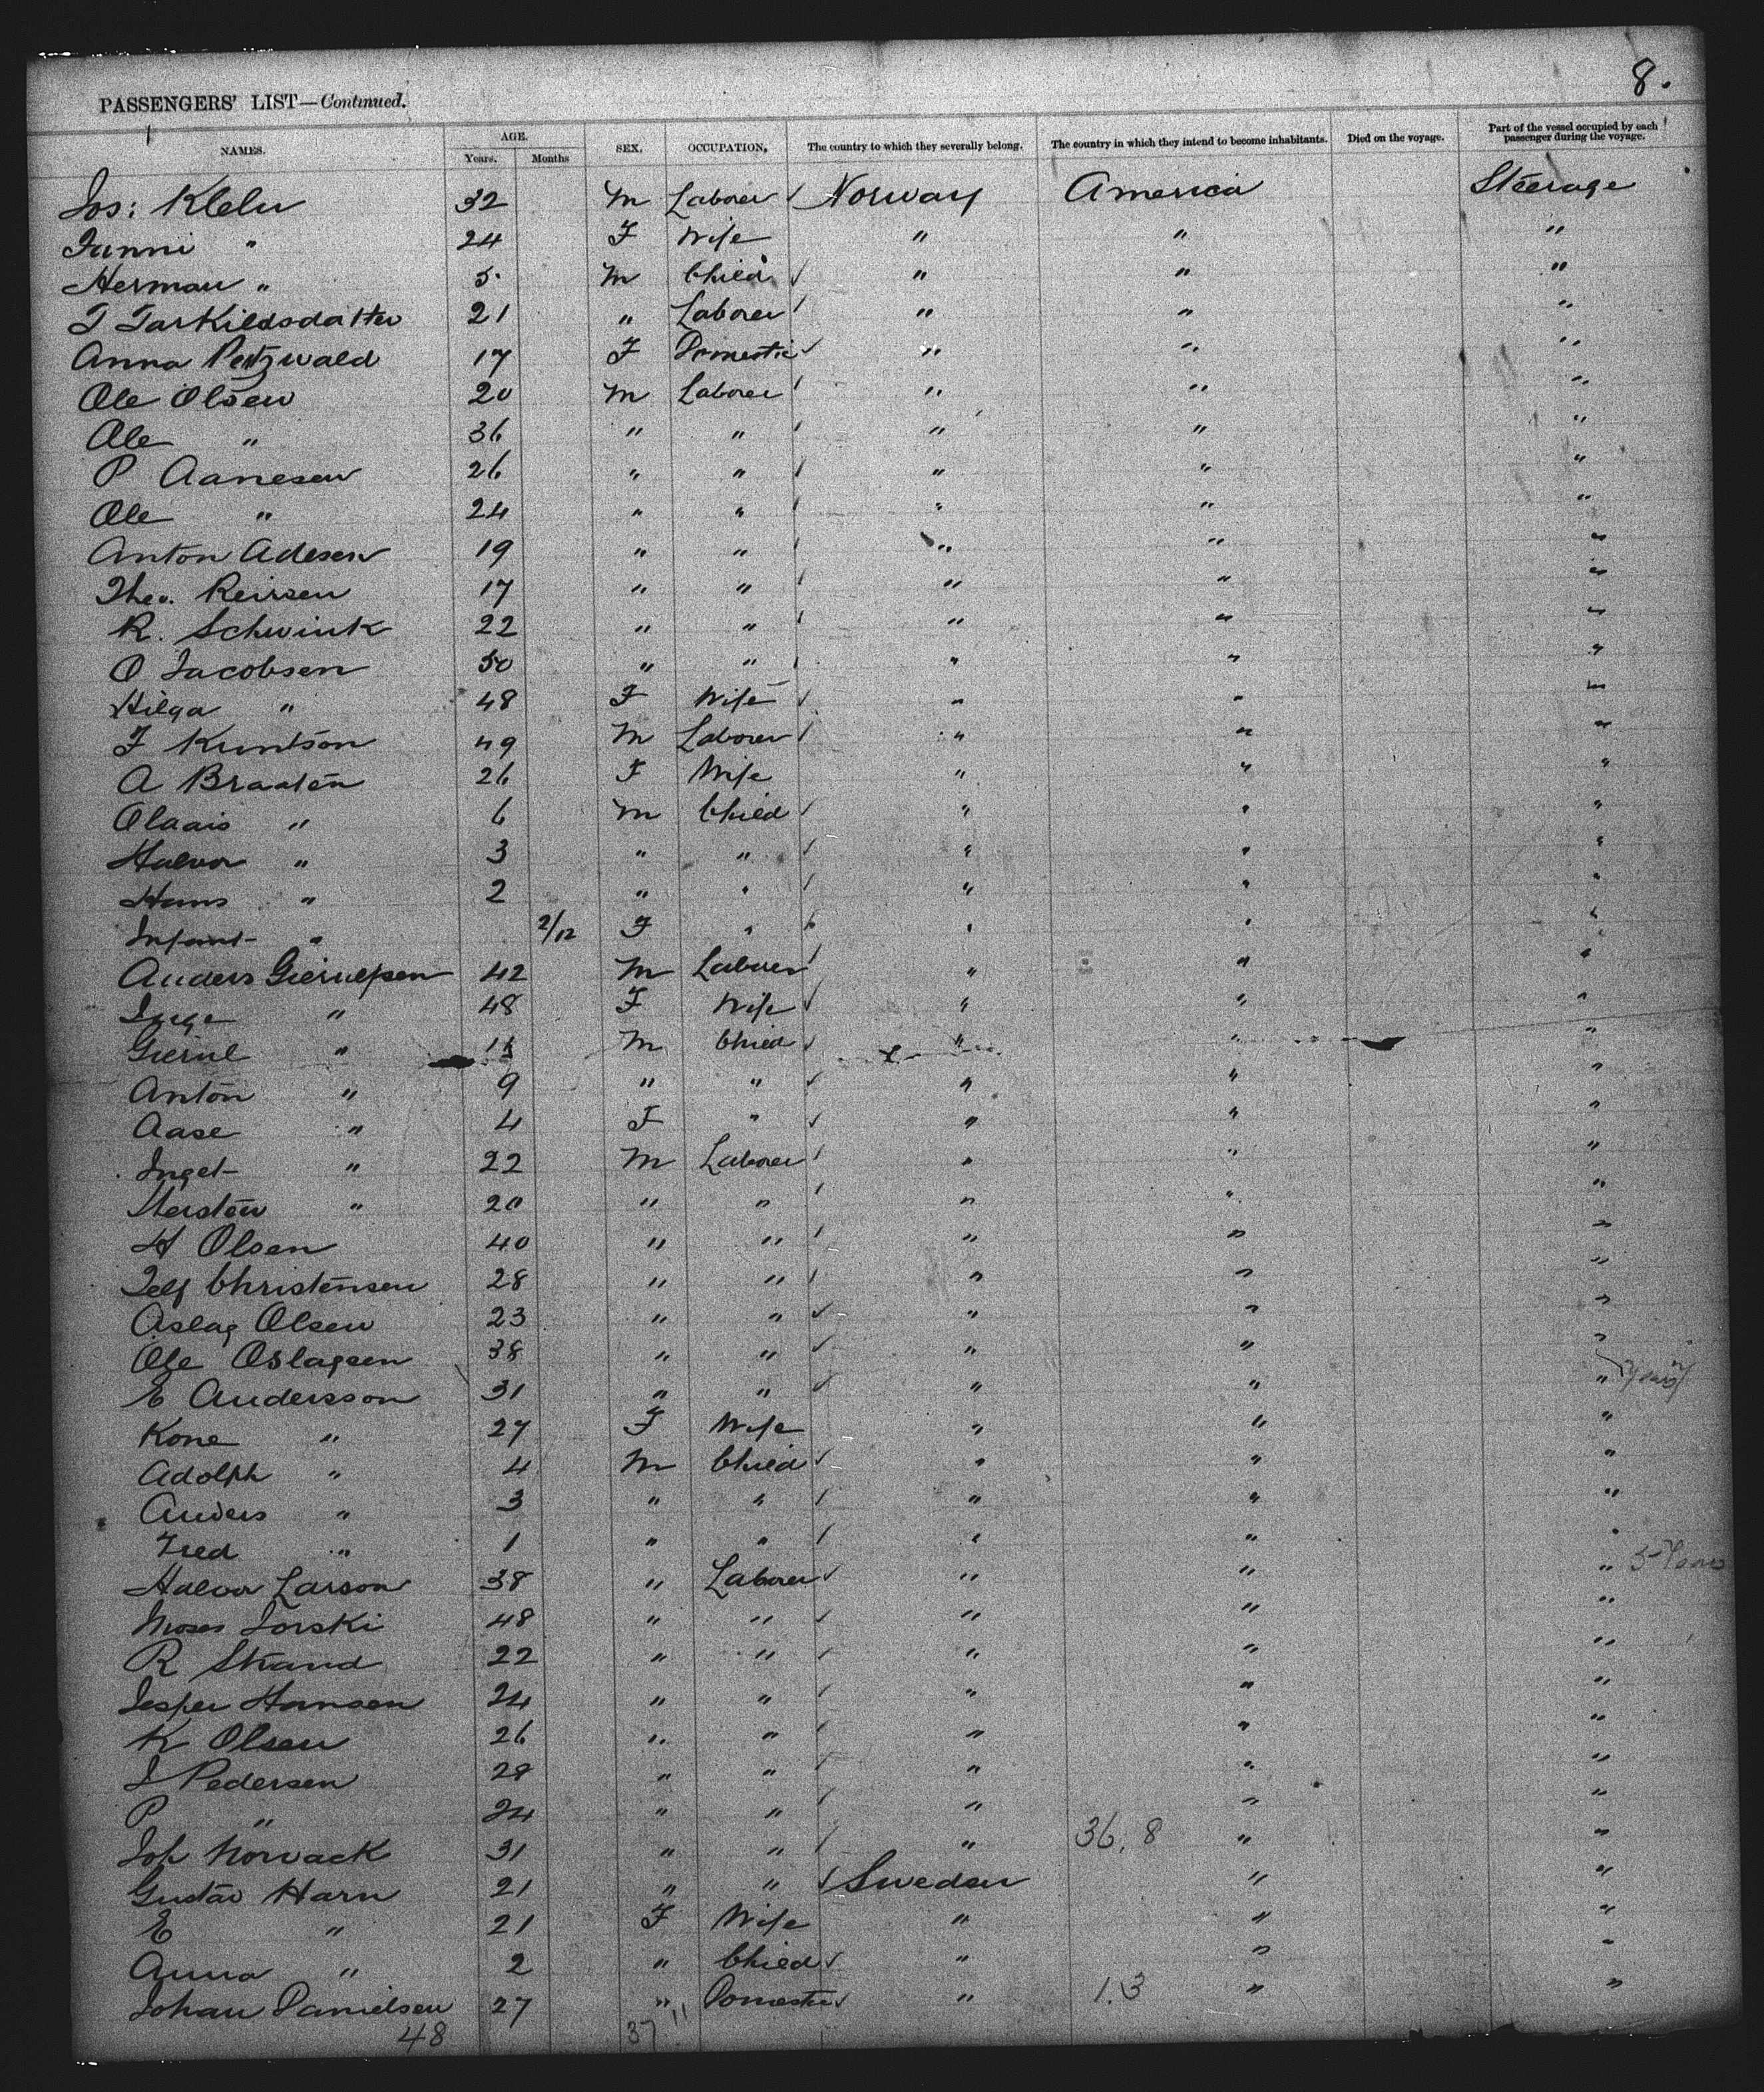 8.
PASSENGERS' LIST—Continued.
NAMES. AGE. Years. Months SEX. OCCUPATION. The country to which they severally belong. The country in which they intend to become inhabitants. Died on the voyage. Part of the vessel occupied by each passenger during the voyage.
Jos: Klehr 32 M Laborer Norway America Steerage
Fanni " 24 F Wife " " "
Herman " 5 M Child " " "
T Tarkildsdatter 21 " Laborer " " "
Anna Petzwald 17 F Domestic " " "
Ole Olsen 20 M Laborer " " "
Ole " 36 " " " " "
P Aanesen 26 " " " " "
Ole " 24 " " " " "
Anton Adesen 19 " " " " "
Theo. Reirsen 17 " " " " "
R. Schwink 22 " " " " "
O Jacobsen 50 " " " " "
Hilga " 48 F Wife " " "
F Kuntson 49 M Laborer " " "
A Braaten 26 F Wife " " "
Olaais " 6 M Child " " "
Halvor " 3 " " " " "
Hans " 2 " " " " "
Infant " 2/12 F " " " "
Anders Gierulfsen 42 M Laborer " " "
Inge " 48 F Wife " " "
Gierul " M Child " " "
Anton " 9 " " " " "
Aase " 4 F " " " "
Inget " 22 M Laborer " " "
Kersten " 20 " " " " "
H Olsen 40 " " " " "
Telf Christensen 28 " " " " "
Aslag Olsen 23 " " " " "
Ole Oslagsen 38 " " " " "
E Andersson 31 " " " " "
Kone " 27 F Wife " " "
Adolph " 4 M Child " " "
Anders " 3 " " " " "
Fred " 1 " " " " "
Halvor Larson 38 " Laborer " " " 5 Years
Moses Jorski 48 " " " " "
R Strand 22 " " " " "
Jesper Hansen 24 " " " " "
K Olsen 26 " " " " "
J Pedersen 28 " " " " "
P " 24 " " " " "
Joh Norvack 31 " " " 36.8 " "
Gustav Harn 21 " " Sweden " "
E " 21 F Wife " " "
Anna " 2 " Child " " "
Johan Danielsen 27 " Domestic " 1.3 " "
48 37 11